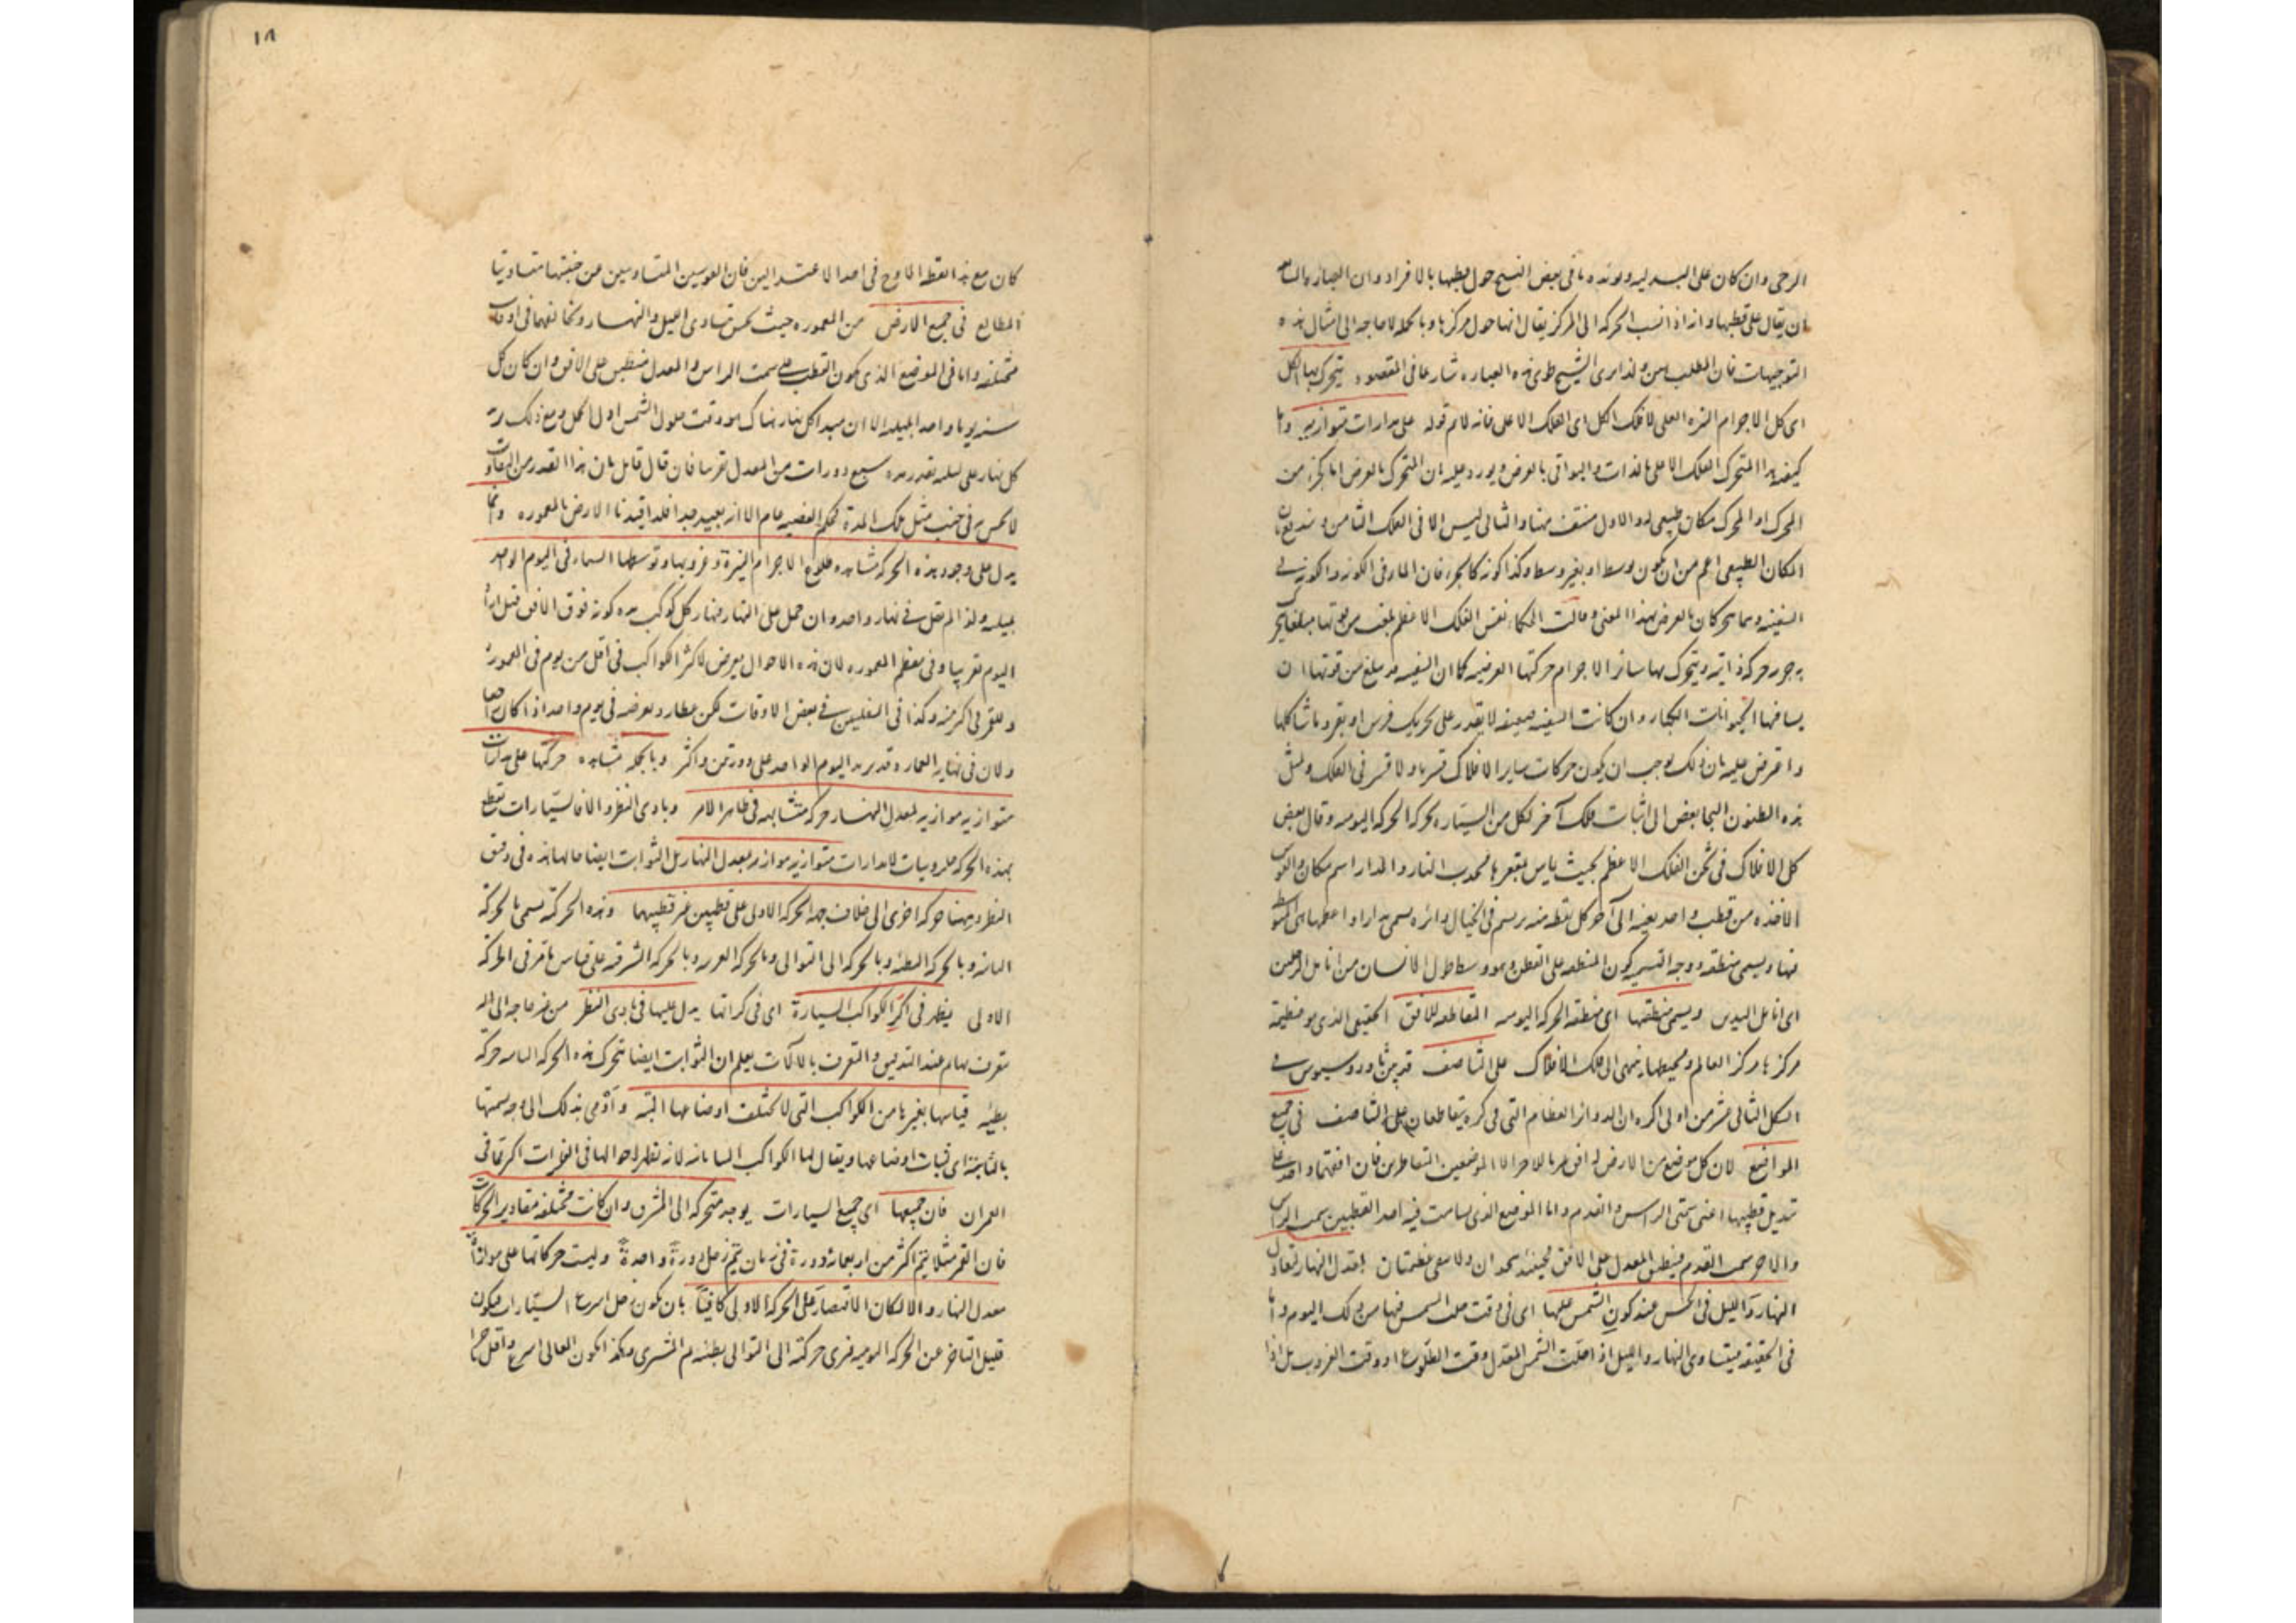 الرحى وان كان على
ان يقال على قطبها وانه اذا انسب الحركة الى المركز يقال انها حول مركزها وبالجملة لا حاجة الى امثال هذه
التوجيهات فان المطلب هين ولذا يرى الشيخ طوى هذه العبارة شارعا في المقصود يتحرك بها الكل
اى كل الاجرام النيرة العلى لا فلك الكل اى الفلك الاعلى فانه لا يلائم قوله على مدارات متوازية
المتحرك الفلك الاعلى بالذات والبواقى بالعرض ويورد عليه ان المتحرك بالعرض اما كجزء من
المحرك او المحرك مكان طبيعى له والاول منتف هنا والثانى ليس الا فى الفلك الثامن
المكان الطبيعى اعم من ان يكون بوسط او بغير وسط وكذا كونه كالجزء فان الماء فى الكوز والكوز فى
السفينة بالعرض بهذا المعنى وقالت الحكماء نفس الفلك الاعظم بلغت من قوتها مبلغا يحرك
به جرمه حركة ذاتية ويتحرك بها سائر الاجرام حركتها العرضية كما ان السفينة بلغ من قوتها ان
يسافر بها الحيوانات الكبار وان كانت السفينة ضعيفة لا يقدر على تحريك فرس او بقر وما شاكلها
واعترض عليه بان ذلك يوجب ان يكون حركات سایر الافلاك قسرية ولا قسر فى الفلك ولمثل
هذه الظنون التجا بعض الى اثبات فلك آخر لكل من السيارة يحركه الحركة اليومية وقال بعض
كل الافلاك فى ثخن الفلك الاعظم بحيث يماس مقعرها محدب النار والمدار اسم مكان
من قطب واحد بعينه الى آخر كل نقطة منه يرسم فى الخيال دائرة يسمى مدارا واعظمها
منها ويسمى منطقة ووجه التسمية كون المنطقة على القطن وهو وسط طول الانسان من انامل الرجلين
اى انامل اليدين ويسمى منطقتها اى منطقة الحركة اليومية المتقاطعة للافق الحقيقى الذى هو عظيمة
مركزها مركز العالم ومحيطها ينتهى الى فلك الافلاك على التناصف قد بين ثاوذوسيوس فى
الشكل الثانى عشر من اولى اكره ان الدوائر العظام التى فى كرة يتقاطعان على التناصف فى جميع
المواضع لان كل موضع من الارض له افق مغاير للاخر الا الموضعين المتقاطرين فان افقهما واحد
تبديل قطبيها اعنى سمتى الراس والقدم واما الموضع الذى يسامت فيه احد القطبين سمت الراس
والاخر سمت القدم فينطبق المعدل على الافق فحينئذ يتحدان ولا يبقى عظيمتان معدل النهار لتعادل
النهار والليل فى الحس عند كون الشمس عليها اى فى وقت حلت الشمس فيها من ذلك اليوم واما
فى الحقيقة فيتساوى النهار والليل اذا حلت الشمس المعدل وقت الطلوع او وقت الغروب بل اذا
كان مع هذا نقطة الاوج فى احد الاعتدالين فان القوسين المتساويتين عن جنبتيها متساويتا
المطالع فى جميع الارض من المعمورة حيث يحس تساوى الليل والنهار وتخالفهما فى اوقات
مختلفة واما فى الموضع الذى يكون القطب على سمت الراس والمعدل منطبق على الافق وان كان كل
سنة يوما واحدا بليلة الا ان مبدا كل نهار هناك هو وقت حلول الشمس اول الحمل ومع ذلك
كل نهار على ليلة بقدر مدة سبع دورات من المعدل تقريبا فان قال قايل بان هذا القدر من التفاوت
لا يحس به فى جنب مثل تلك المدة فحكم القضية عام الا انه بعيد جدا فلذا قيدنا الارض بالمعمورة ومما
يدل على وجود هذه الحركة مشاهدة طلوع الاجرام النيرة وغروبها وتوسطها السماء فى اليوم الواحد
بليلته ولذا لم يقل فى نهار واحد وان حمل على النهار فنهار كل كوكب مدة كونه فوق الافق
اليوم تقريبا وفى معظم المعمورة لان هذه الاحوال يعرض لاكثر الكواكب فى اقل من يوم فى المعمورة
وللقمر فى اكثر منه وكذا فى السفليين فى بعض الاوقات لكن عطارد يعرضه فى يوم واحد اذا كان
ولان فى نهاية العمارة قد يزيد اليوم الواحد على دورتين واكثر وبالجملة مشاهدة حركتها على مدارات
متوازية موازية لمعدل النهار حركة متشابهة فى ظاهر الامر وبادى النظر والا فالسيارات تقطع
بهذه الحركة حلزونيات لا مدارات متوازية موازية لمعدل النهار بل الثوابت ايضا حالها هذه فى دقيق
النظر وههنا حركة اخرى الى خلاف جهة الحركة الاولى على قطبين غير قطبيهما وهذه الحركة يسمى بالحركة
الثانية وبالحركة البطيئة وبالحركة الى التوالى وبالحركة الغربية وبالحركة الشرقية على قياس ما مر فى الحركة
الاولى يظهر فى اكر الكواكب السيارة اى فى كراتها يدل عليها فى بادى النظر من غير حاجة الى آلة
يتعرف بها ثم عند التدقيق والتعرف بالآلات يعلم ان الثوابت ايضا يتحرك هذه الحركة الثانية حركة
بطيئة قياسها بغيرها من الكواكب التى لا تختلف اوضاعها البتة واَوْمى بذلك الى وجه تسميتها
بالثابتة اى لثبات اوضاعها ويقال لها الكواكب البيابانية لانه تظهر احوالها فى الفلوات اكثر مما فى
العمران فان جميعها اى جميع السيارات يوجد متحركة الى المشرق وان كانت مختلفة مقادير الحركات
فان القمر مثلا يتم اكثر من اربعمائة دورة فى زمان يتم زحل دورة واحدة وليست حركاتها على موازاة
معدل النهار والا لكان الاقتصار على الحركة الاولى كافيا بان يكون زحل اسرع السيارات فيكون
قليل التاخر عن الحركة اليومية فيرى حركته الى التوالى بطيئة ثم المشترى وهكذا يكون العالى اسرع واقل تاخرا